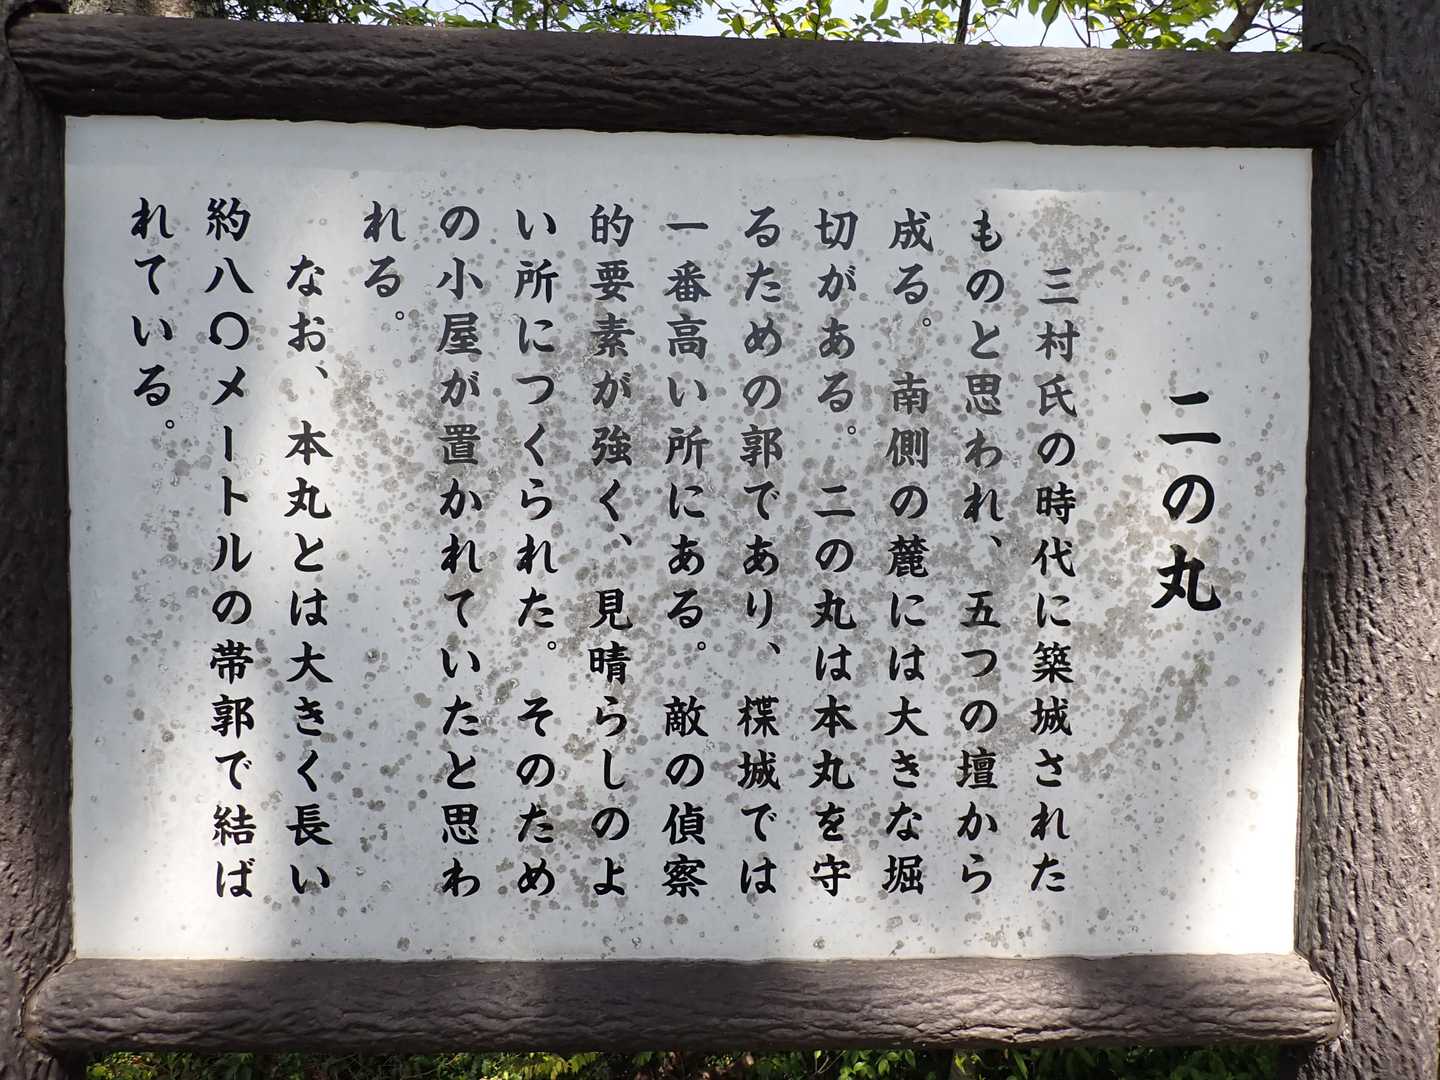 二の丸
三村氏の時代に築城された
ものと思われ、五つの壇から
成る。南側の麓には大きな堀
切がある。二の丸は本丸を守
るための郭であり、楪城では
一番高い所にある。敵の偵察
的要素が強く、見晴らしのよ
い所につくられた。そのため
の小屋が置かれていたと思わ
れる。
なお、本丸とは大きく長い
約八〇メートルの帯郭で結ば
れている。